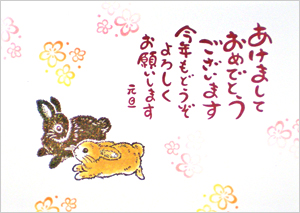 あけまして
おめでとう
ございます
今年もどうぞ
よろしく
お願いします
元旦